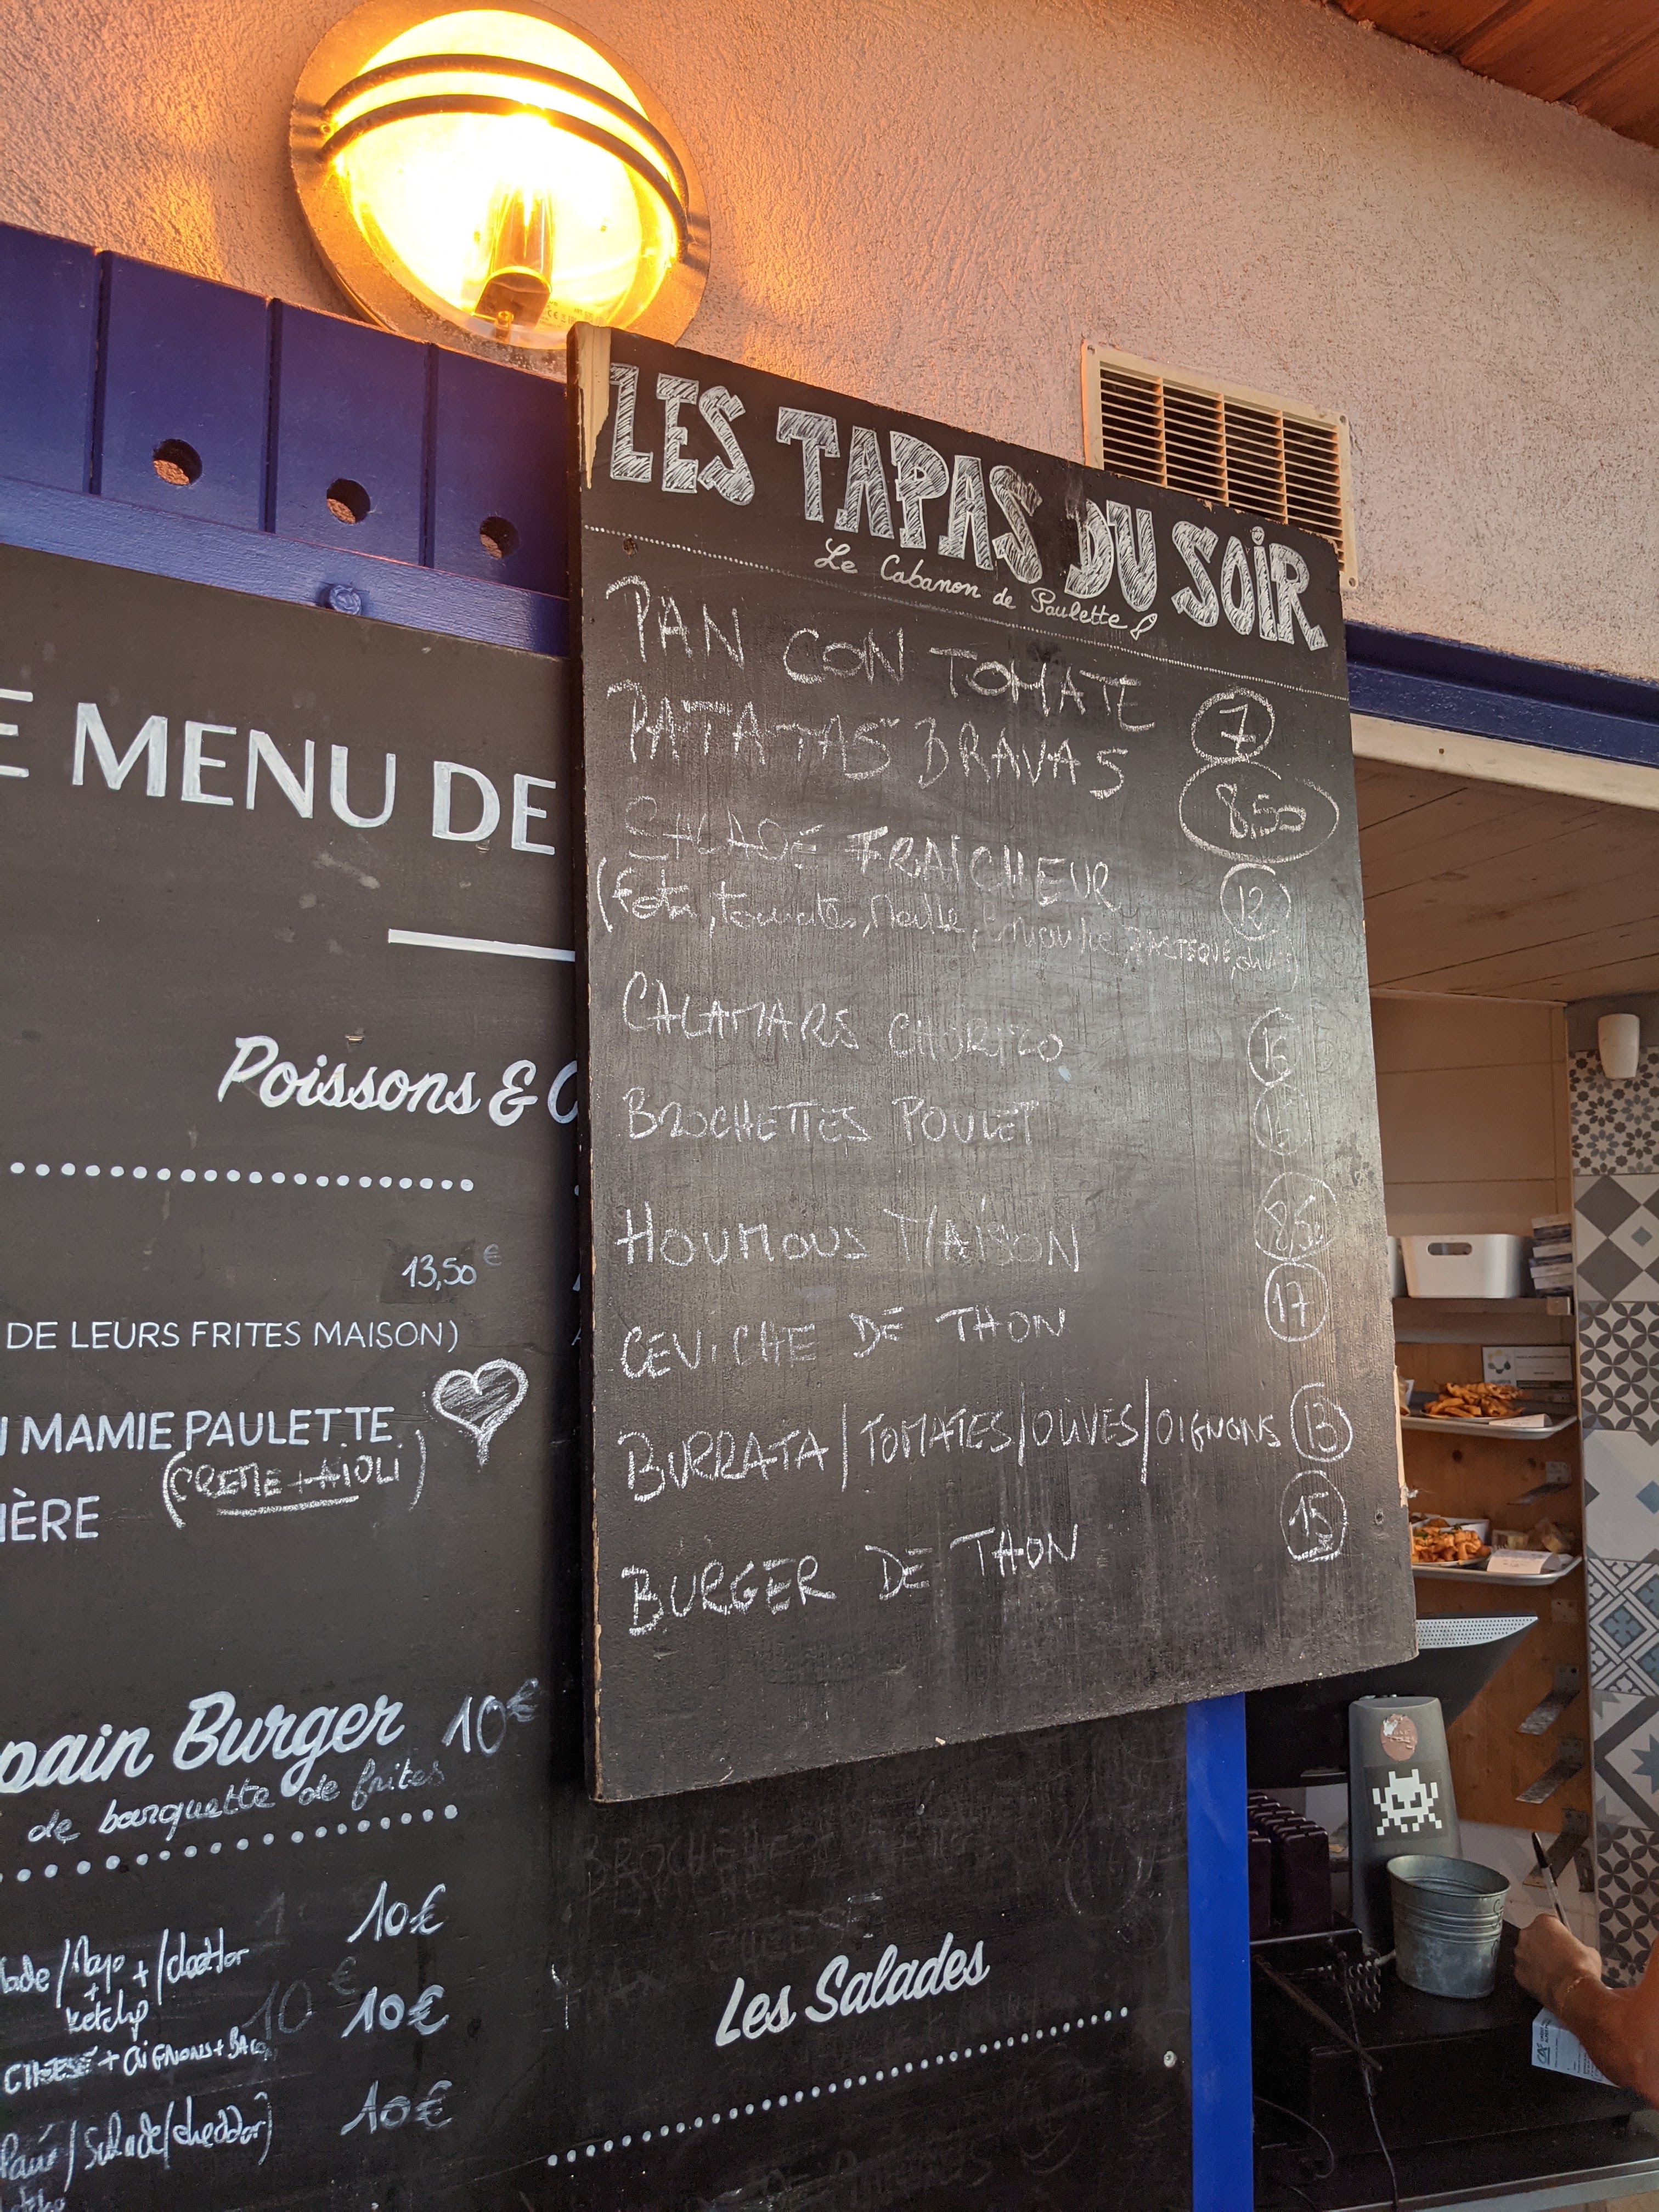 LES TAPAS DU SOIR
Le Cabanon de Paulette
PAN CON TOMATE 7
PATATAS BRAVAS 8,50
SALADE FRAICHEUR 12
(Feta, tomates, Menthe, PASTEQUE,
CALAMARS CHORIZO
BROCHETTES POULET
HOUMOUS MAISON
CEVICHE DE THON 17
BURRATA/TOMATES/OLIVES/OIGNONS 13
BURGER DE THON 15
E MENU DE
Poissons &
13,50 €
DE LEURS FRITES MAISON)
MAMIE PAULETTE
(CREME + AIOLI)
IÈRE
pain Burger 10€
de barquette de frites
10€
/Mayo + /cheddar
+
ketchp
10 € 10€
CHEESE + OIGNONS + BACON
10€
/Salade/cheddar)
Les Salades